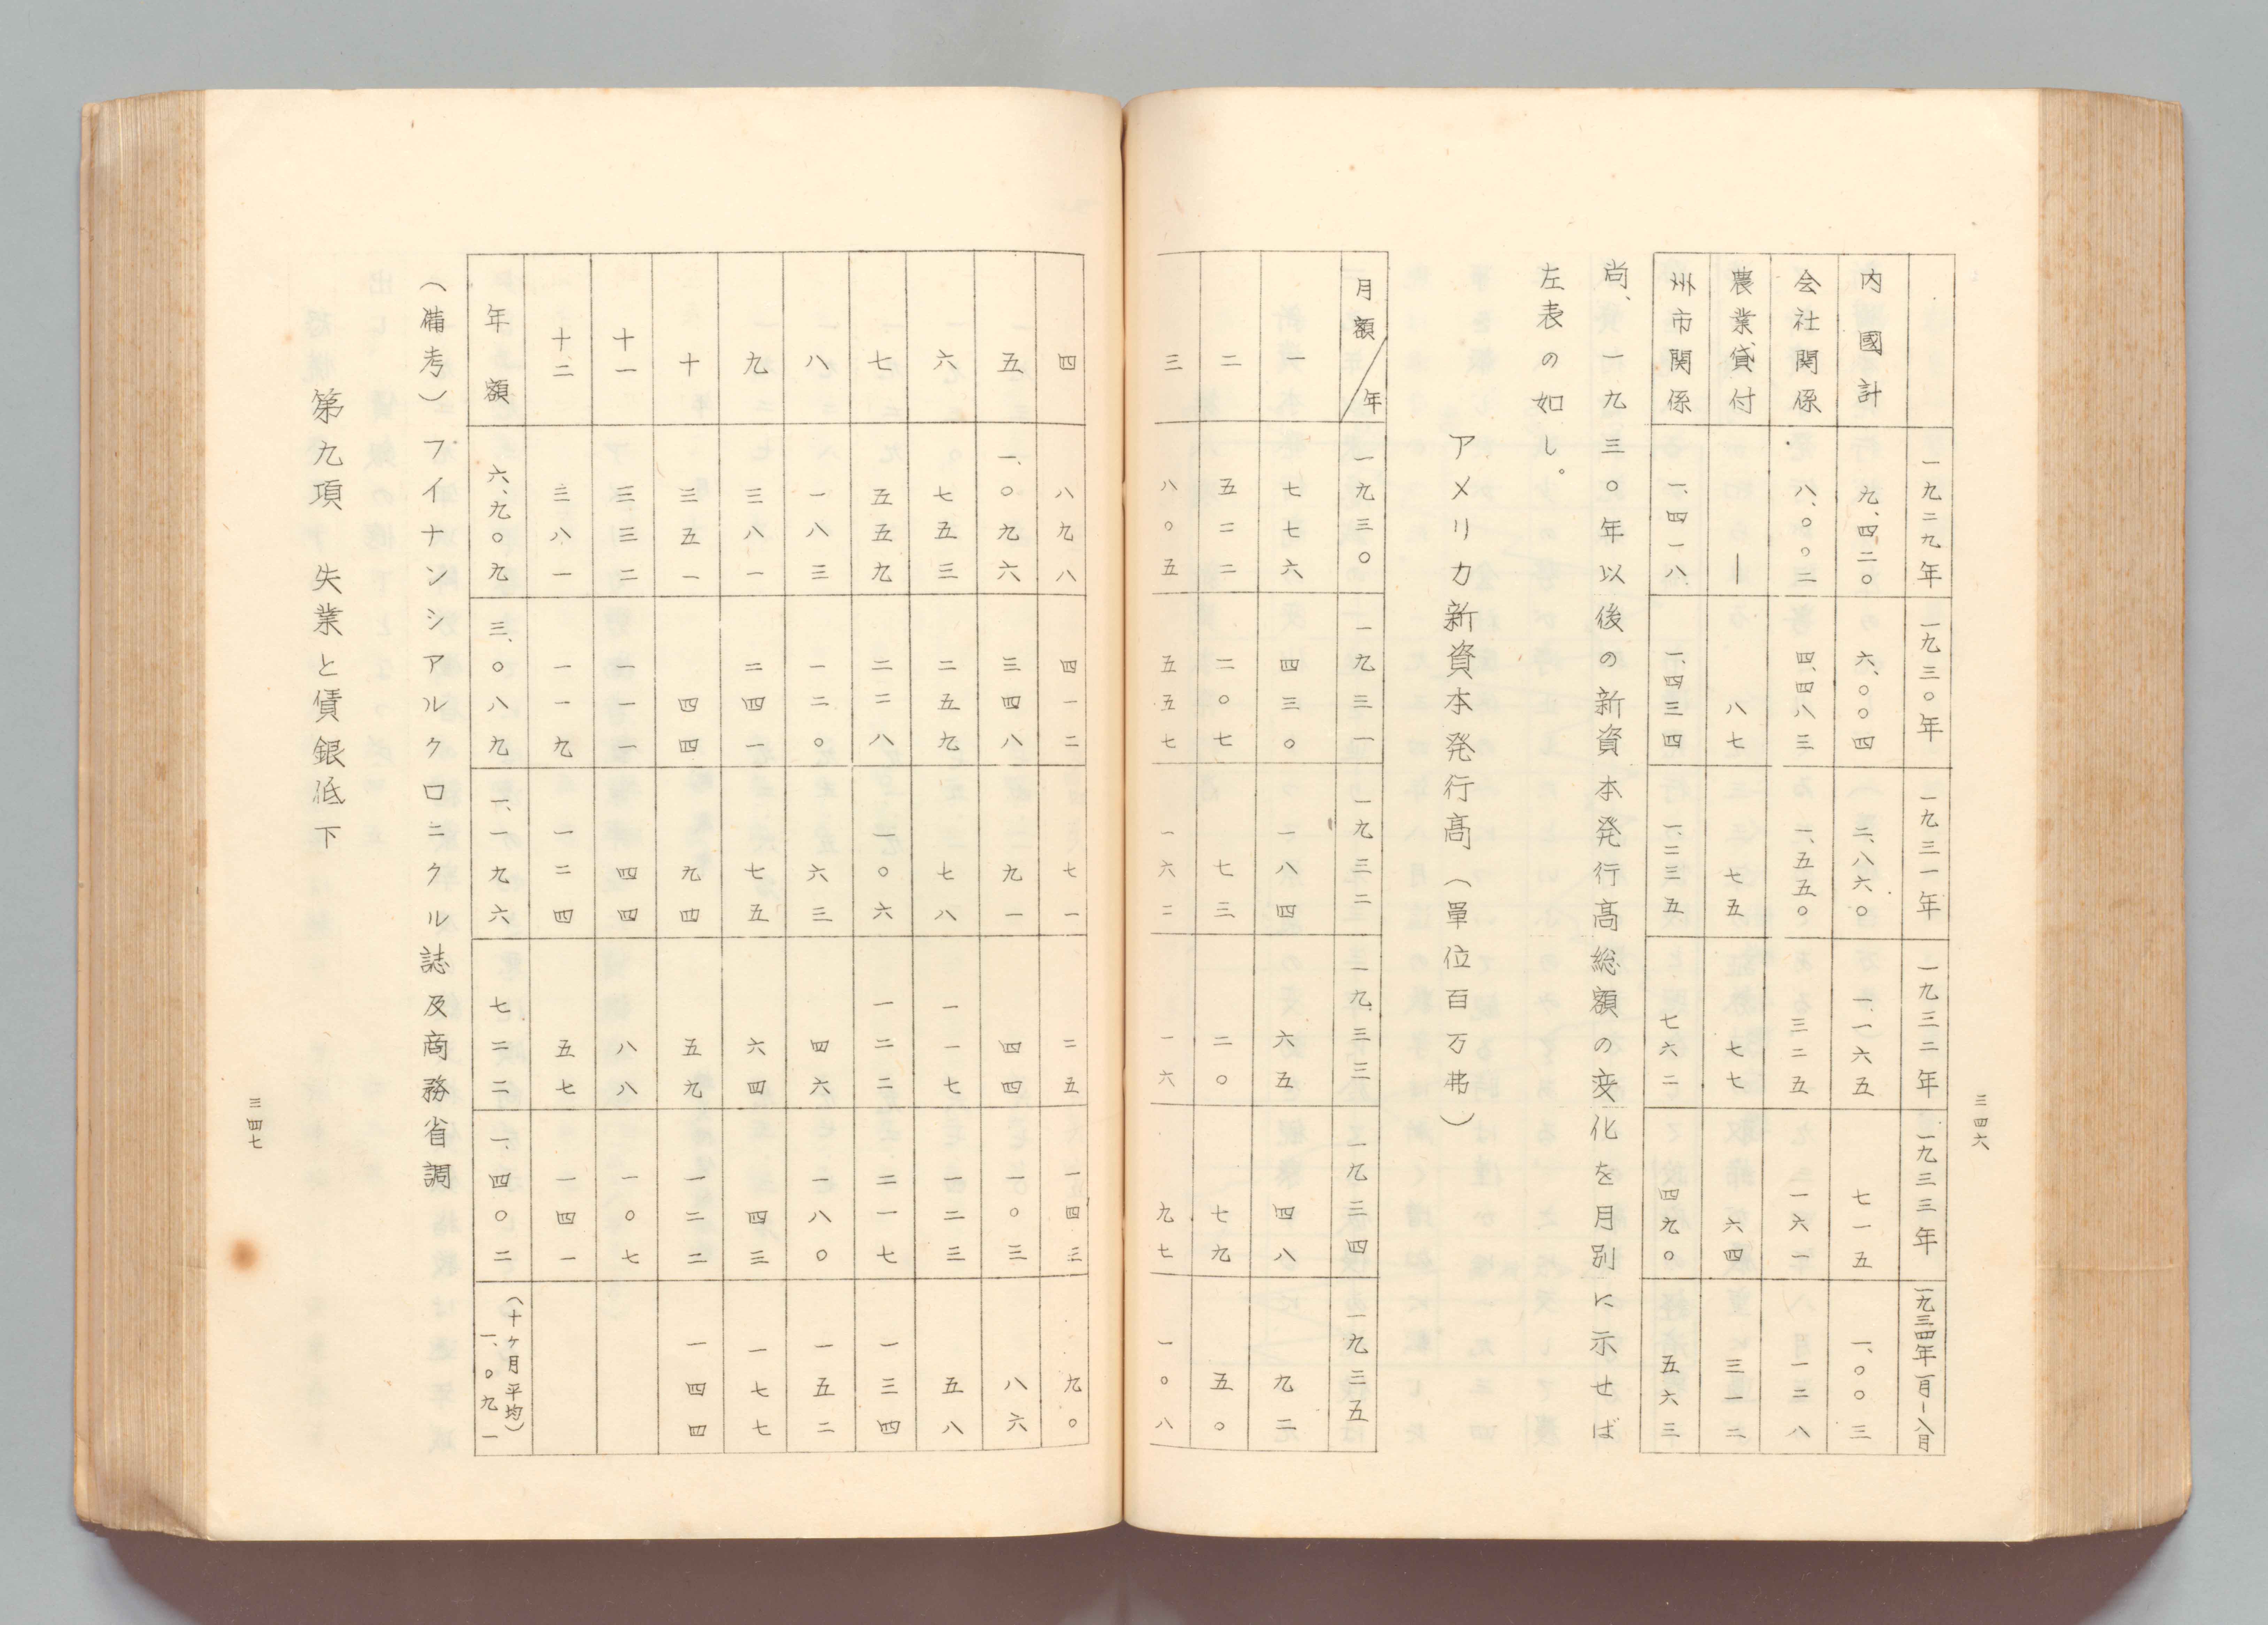 三四六
一九二九年 一九三〇年 一九三一年 一九三二年 一九三三年 一九三四年一月-八月
内國計 九、四二〇 六、〇〇四 二、八六〇 一、一六五 七一五 一、〇〇三
会社関係 八、〇〇二 四、四八三 一、五五〇 三二五 一六一 一二八
農業貸付 — 八七 七五 七七 六四 三一二
州市関係 一、四一八 一、四三四 一、二三五 七六二 四九〇 五六三
尚、一九三〇年以後の新資本発行高総額の変化を月別に示せば
左表の如し。
アメリカ新資本発行高(單位百万弗)
月額/年 一九三〇 一九三一 一九三二 一九三三 一九三四 一九三五
一 七七六 四三〇 一八四 六五 四八 九二
二 五二二 二〇七 七三 二〇 七九 五〇
三 八〇五 五五七 一六二 一六 九七 一〇八
四 八九八 四一二 七一 二五 一四三 九〇
五 一、〇九六 三四八 九一 四四 一〇三 八六
六 七五三 二五九 七八 一一七 一二三 五八
七 五五九 二二八 一〇六 一二二 二一七 一三四
八 一八三 一二〇 六三 四六 一八〇 一五二
九 三八一 二四一 七五 六四 四三 一七七
十 三五一 四四 九四 五九 一二二 一四四
十一 三三二 一一一 四四 八八 一〇七
十二 三八一 一一九 一二四 五七 一四一
年額 六、九〇九 三、〇八九 一、一九六 七二二 一、四〇二 (十ヶ月平均)
一、〇九一
(備考)フイナンシアルクロニクル誌及商務省調
第九項 失業と賃銀低下
三四七